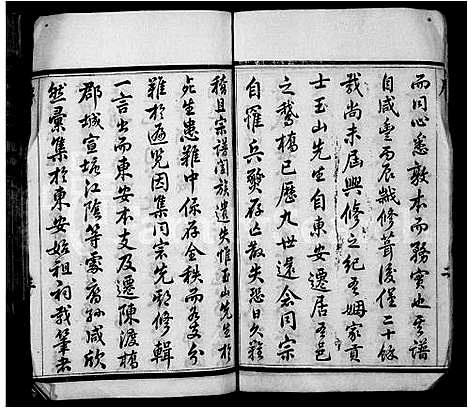 而同心悉敦本而務實也吾譜
自咸豐丙辰裁修葺後僅二十餘
哉尚未屆興修之紀吾姻家貢
士玉山先生自東安遷居吾邑
之鵝橋已歷九世還會同宗
自罹兵燹存亡散失恐日久難
稽且宗譜闔族遺失惟玉山先生於
死生患難中保存全秩而各支分
難於遍覽因集同宗先期修輯
一言出而東安本支及遷陳渡橋
郡城宣塘江陰等處裔孫咸欣
然彙集於東安始祖祠哉筆者